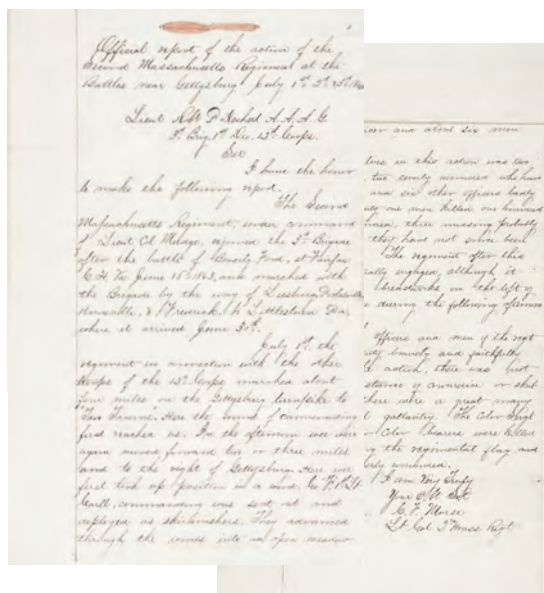 Official report of the action of the
Second Massachusetts Regiment at the
Battles near Gettysburg July 1st 2d & 3d 1863
Lieut Robt P Dechert A. A. A. G
3d Brig. 1st Div. 12th Corps.
Sir
I have the honor
to make the following report.
The Second
Massachusetts Regiment, under command
of Lieut Col Mudge, rejoined the 3d Brigade
after the battle of Beverly Ford, at Fairfax
C. H. Va June 16th 1863, and marched with
the Brigade by the way of Leesburg
& Frederick, to Littlestown
where it arrived June 30th.
July 1st the
regiment in connection with the other
troops of the 12th Corps marched about
four miles on the Gettysburg turnpike to
"Two Taverns". Here the sound of cannonading
first reached us. In the afternoon we were
again moved forward two or three miles
and to the right of Gettysburg. Here we
first took up position in a wood. Co
commanding was sent out and
deployed as skirmishers. They advanced
through the woods into an open meadow
and about six men
in this action was two
two wounded who have
and six other officers badly
one men killed one hundred
three missing probably
they have not since been
The regiment after this
engaged, although it
breastworks on the left of
during the following afternoon
officers and men of the regt
bravely and faithfully
action, there was not
instance of cowardice or
here were a great many
gallantry. The Color Sergt
Color Bearers were killed
the regimental flag, and
wounded.
I am Very Truly
Your Obt Svt
C. F. Morse
Lt. Col 2d Mass Regt